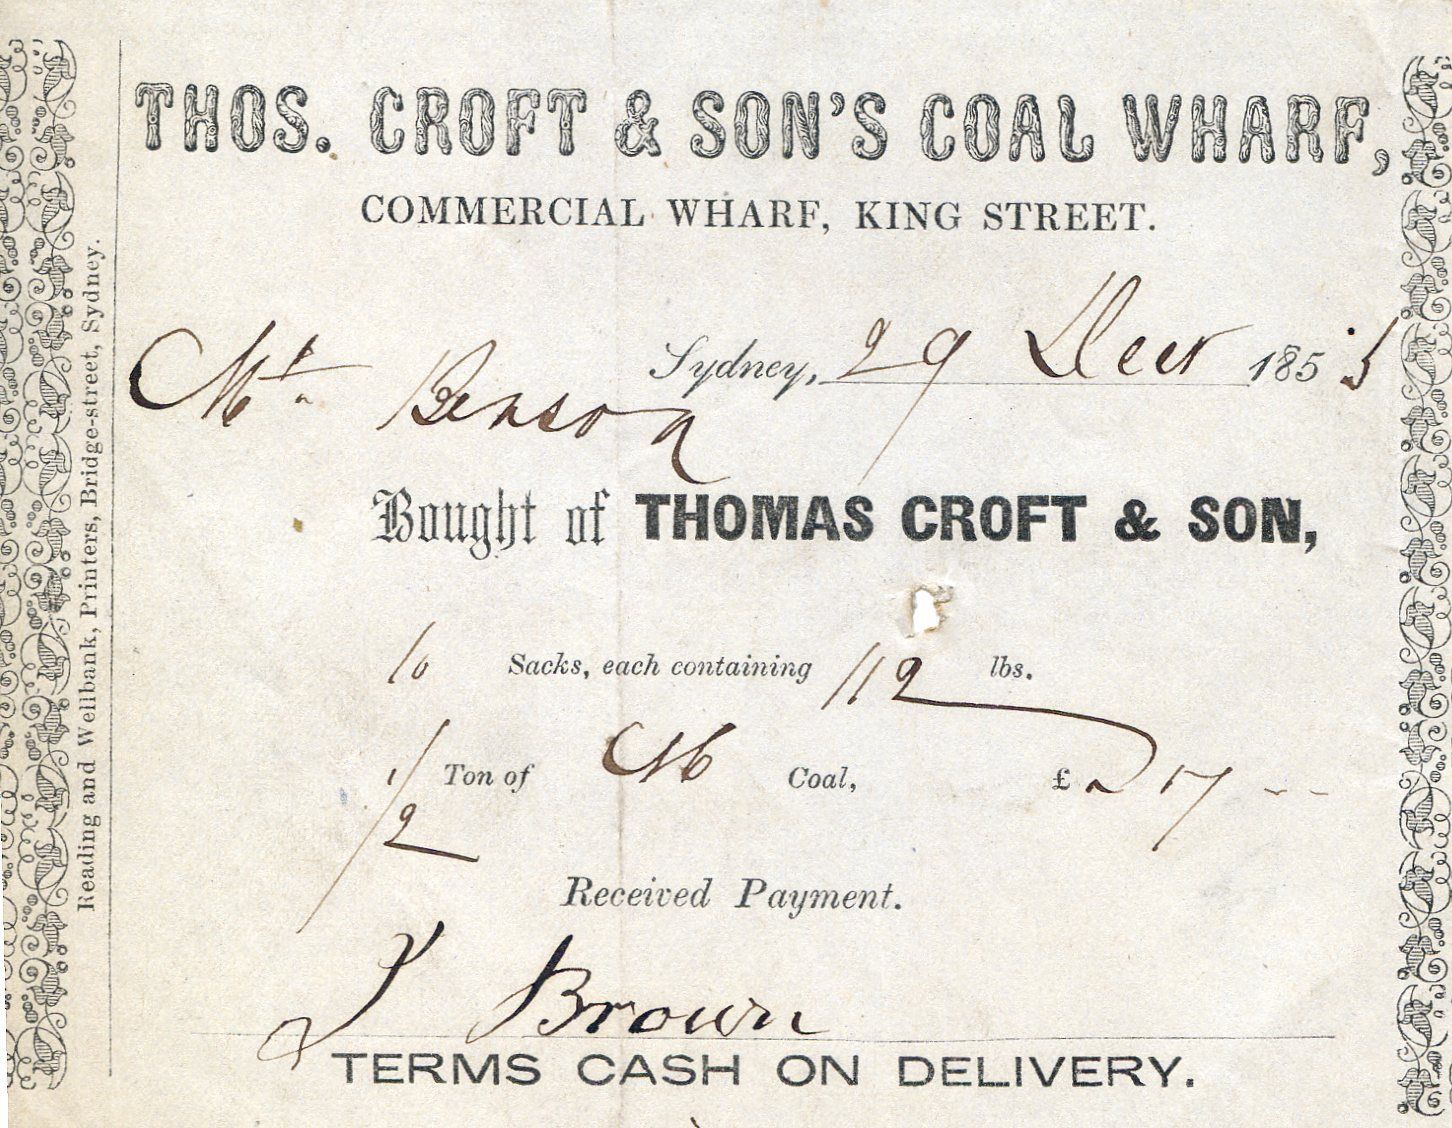 THOS. CROFT & SON'S COAL WHARF,
COMMERCIAL WHARF, KING STREET.
Sydney, 29 Decr 1855
Mr Benson
Bought of THOMAS CROFT & SON,
10 Sacks, each containing 112 lbs.
1/2 Ton of Coal, £ 17 --
Received Payment.
J Brown
TERMS CASH ON DELIVERY.
Reading and Wellbank, Printers, Bridge-street, Sydney.